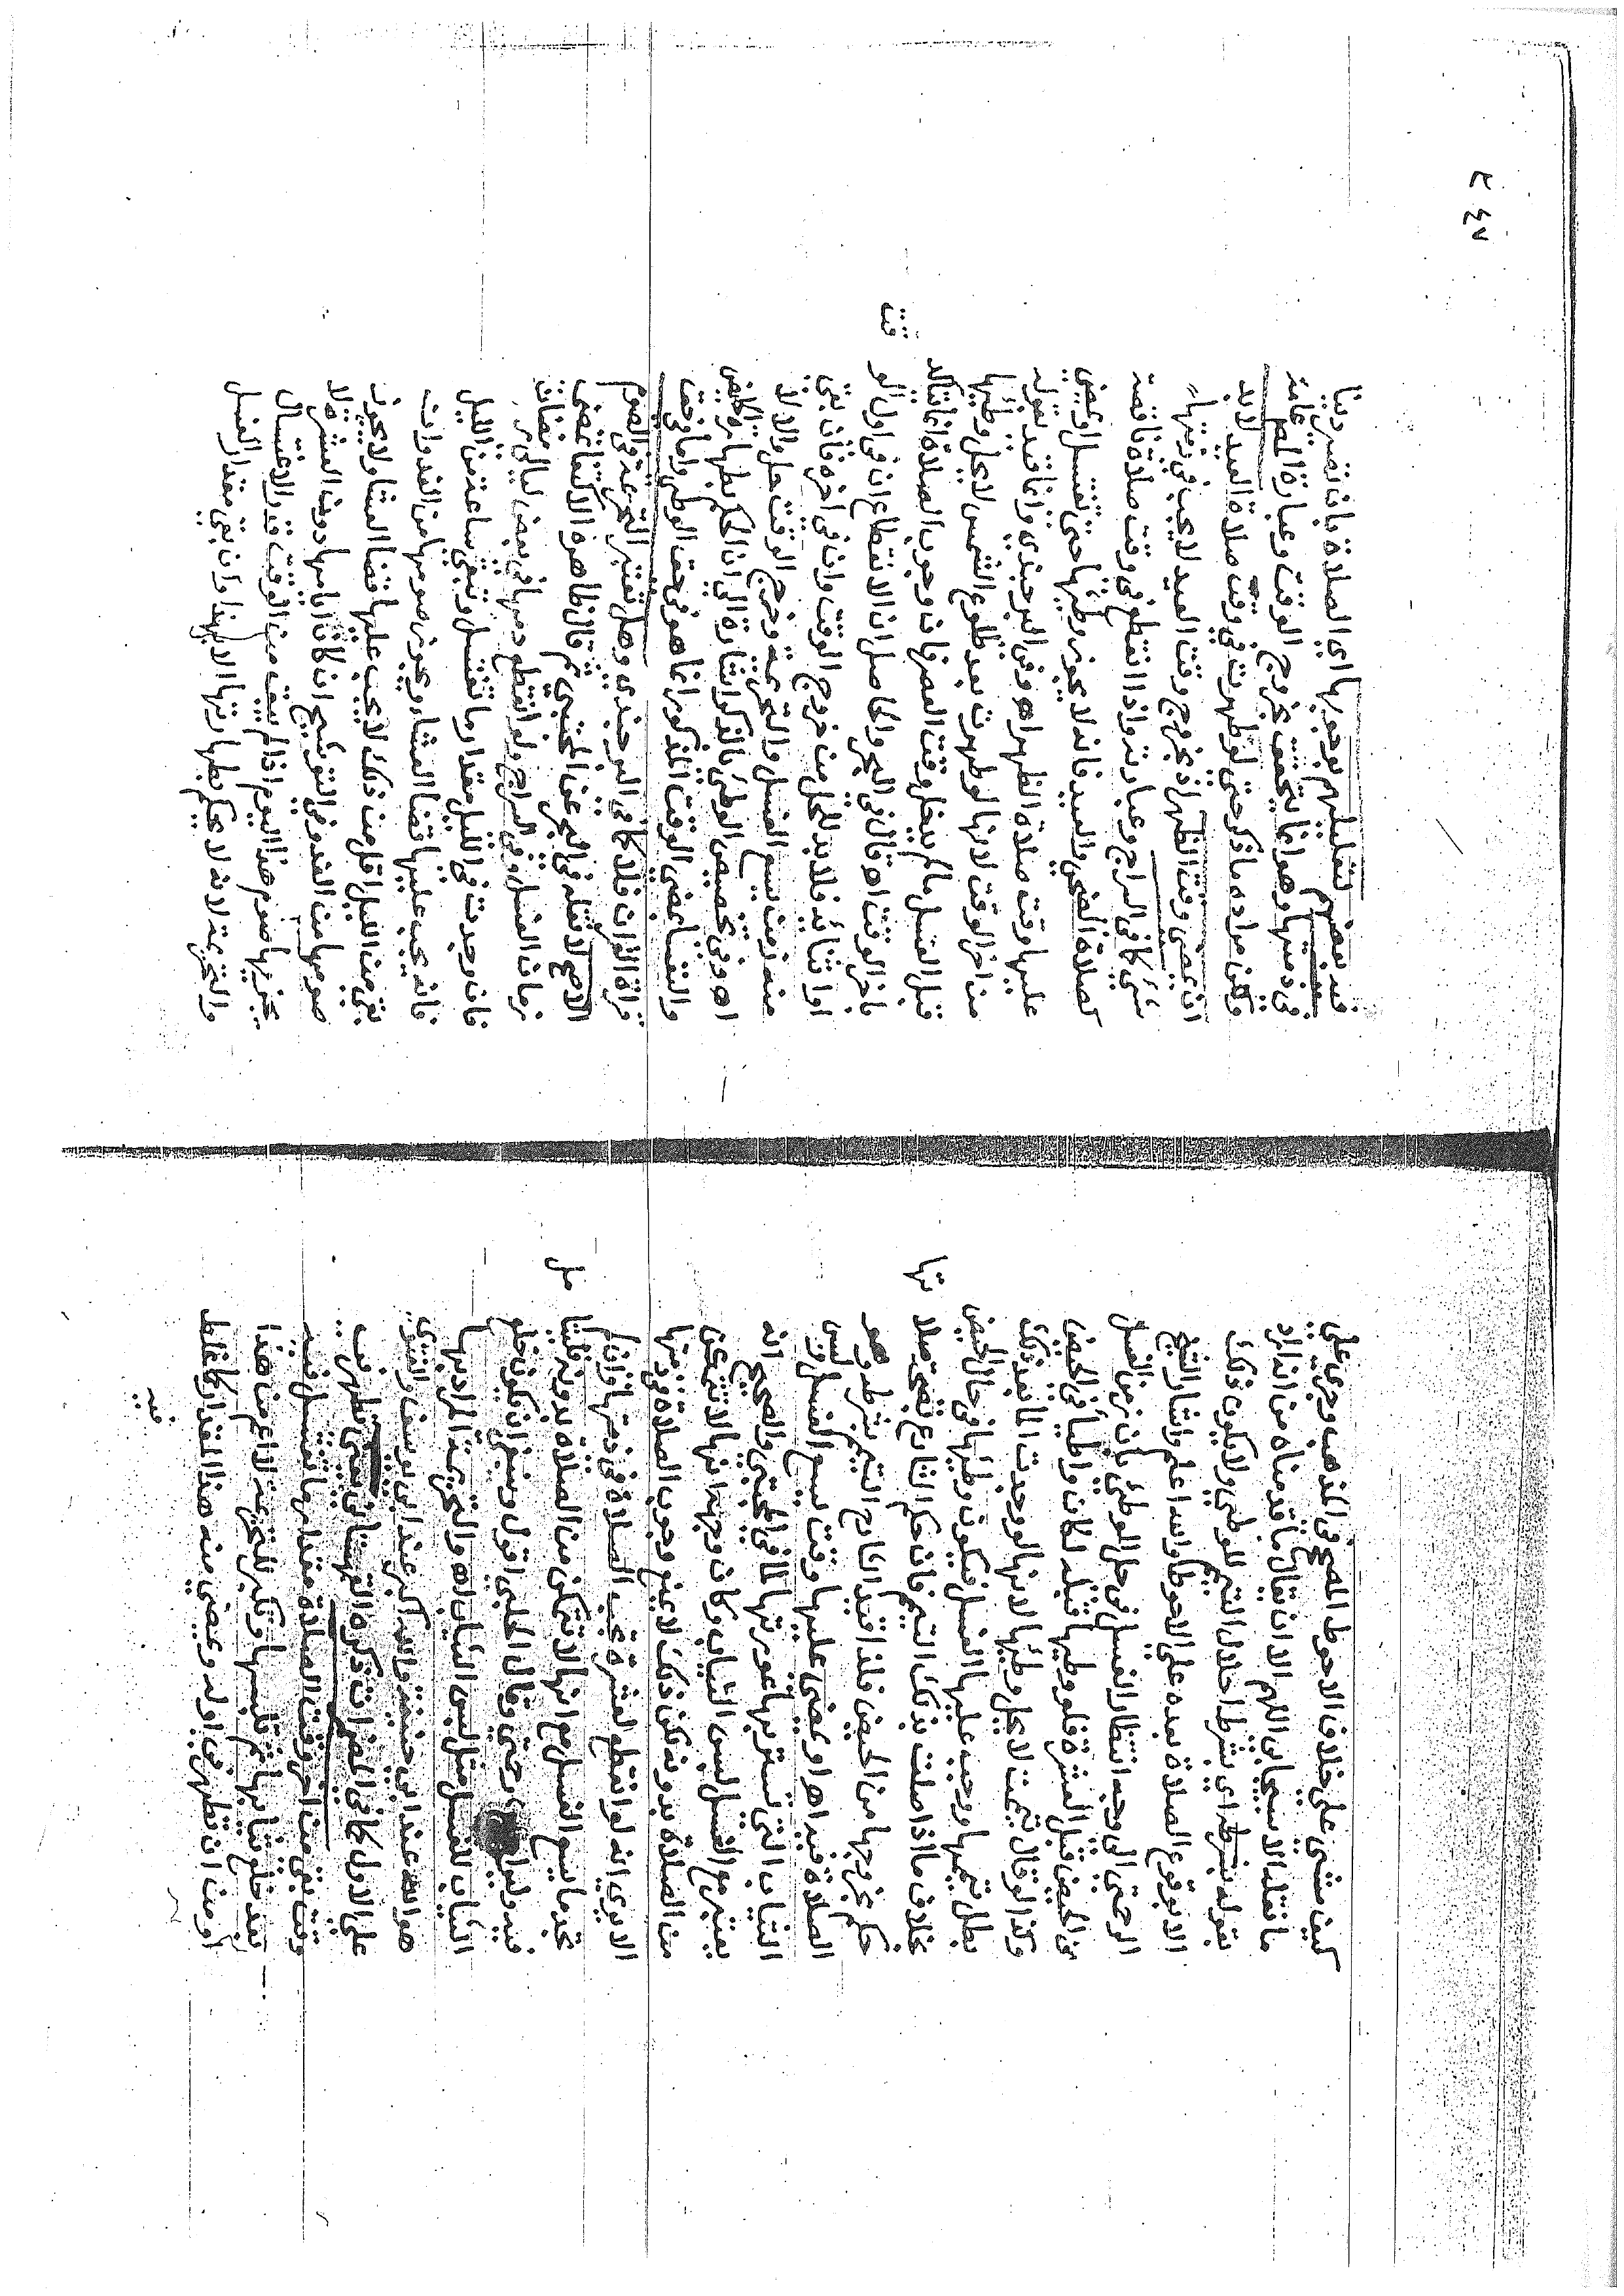 كيف مشى على خلاف الاحوط المصحح في المذهب وجرى على
ما نقله الاسبيجابي اللهم الا ان يقال ما قدمناه من انه اراد
بقوله بشرطه اي بشرط احلال التيمم للوطئ ولا يكون ذلك
الا بوقوع الصلاة بعده على الاحوط والله اعلم واشار الشيخ
الرحمتي الى وجه انتظار الغسل في حل الوطئ بان زمن الغسل
من الحيض قبل العشرة فلو وطيها قبله لكان واطيا في الحيض
وكذا لو قال تيممت لا يحل وطئها لانها لو وجدت الما بعد ذلك
بطل تيممها ووجب عليها الغسل فيكون وطيها في حال الحيض
بخلاف ما اذا صلت بذلك التيمم فان حكم الشارع بصحة صلاتها
حكم بخروجها من الحيض فلذا قيد الشارح التيمم بشرطه وهو
الصلاة فيه اه او يمضي عليها وقت يسع الغسل ولبس
الثياب التي تستر بها عورتها لما في المجتبى والصحيح انه
يعتبر مع الغسل لبس الثياب وكان وجهه انها لا تتمكن
من الصلاة بدونه لكن ذلك لا يمنع وجوب الصلاة في ذمتها
الا يرى انه لو انقطع لعشرة تجب الصلاة في ذمتها وان لم
تجد ما يسع الغسل مع انها لا تتمكن من الصلاة بدونه فليتامل
فيه وليراجع رحمتي وقال الحلبي اقول وينبغي ان يكون خلع
الثياب للغسل مثل لبس الثياب اه والتحريمة المراد بها
هو الله عند ابي حنيفة والله اكبر عند ابي يوسف والفتوى
على الاول كما في المضمرات ذكره القهستاني يعني تطهر في
وقت بقي من اخر وقت الصلاة مقدار ما تغتسل فيه
بعد خلع ثيابها ثم تلبسها وتكبر للتحريمة لا اعم من هذا
او من ان تطهر في اوله ويمضي منه هذا المقدار كما غلط
فيه
فيه بعضهم لتعليلهم بوجوبها اي الصلاة بان تصير دينا
في ذمتها وهو انما يتحقق بخروج الوقت وعبارة المص عامة
لكن مراده ما ذكر حتى لو طهرت في وقت صلاة العيد لابد
ان يمضي وقت الظهر اذ بخروج وقت العيد لا يجب في ذمتها
شيء كما في السراج وعبارته واذا انقطع في وقت صلاة ناقصة
كصلاة الضحى والعيد فانه لا يجوز وطئها حتى تغتسل او يمضي
عليها وقت صلاة الظهر اه وفي البرجندي وانما قيد بقوله
من اخر الوقت لانها لو طهرت بعد طلوع الشمس لا يحل وطيها
قبل الغسل ما لم يدخل وقت العصر فان وجوب الصلاة انما يتاكد
باخر الوقت اه قال في البحر والحاصل ان الانقطاع ان في اول الوقت
او اثنائه فلابد للحل من خروج الوقت وان في اخره فان بقي
منه زمن يسع الغسل والتحريمة وخرج الوقت حل والا لا
اه وفي تخصيص الوطئ بالذكر اشارة الى ان الحكم بطهارة الحائض
والنفسا بمضي الوقت المذكور انما هو في حق الوطئ واما في حق
قراة القران فلا كما في البرجندي وهل تعتبر التحريمة في الصوم
الاصح لا نقله في البحر عن المجتبى ثم قال ظاهره الاكتفا بمضي
زمان الغسل وفي السراج ولو انقطع دمها في بعض ليالي رمضان
فان وجدت في الليل مقدار ما تغتسل وتبقى ساعة من الليل
فانه يجب عليها قضا العشاء ويجوز صومها من الغد وان
بقي من الليل اقل من ذلك لا يجب عليها قضا العشا ولا يجوز
صومها من الغد وفي التوشيح ان كانت ايامها دون العشرة لا
يجزيها صوم هذا اليوم اذا لم يبق من الوقت قدر الاغتسال
والتحريمة لانه لا يحكم بطهارتها الا بهذا وان بقي مقدار الغسل